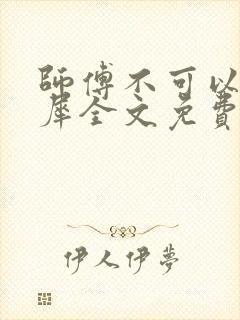 師傅不可以
犀全文免費
伊人伊夢